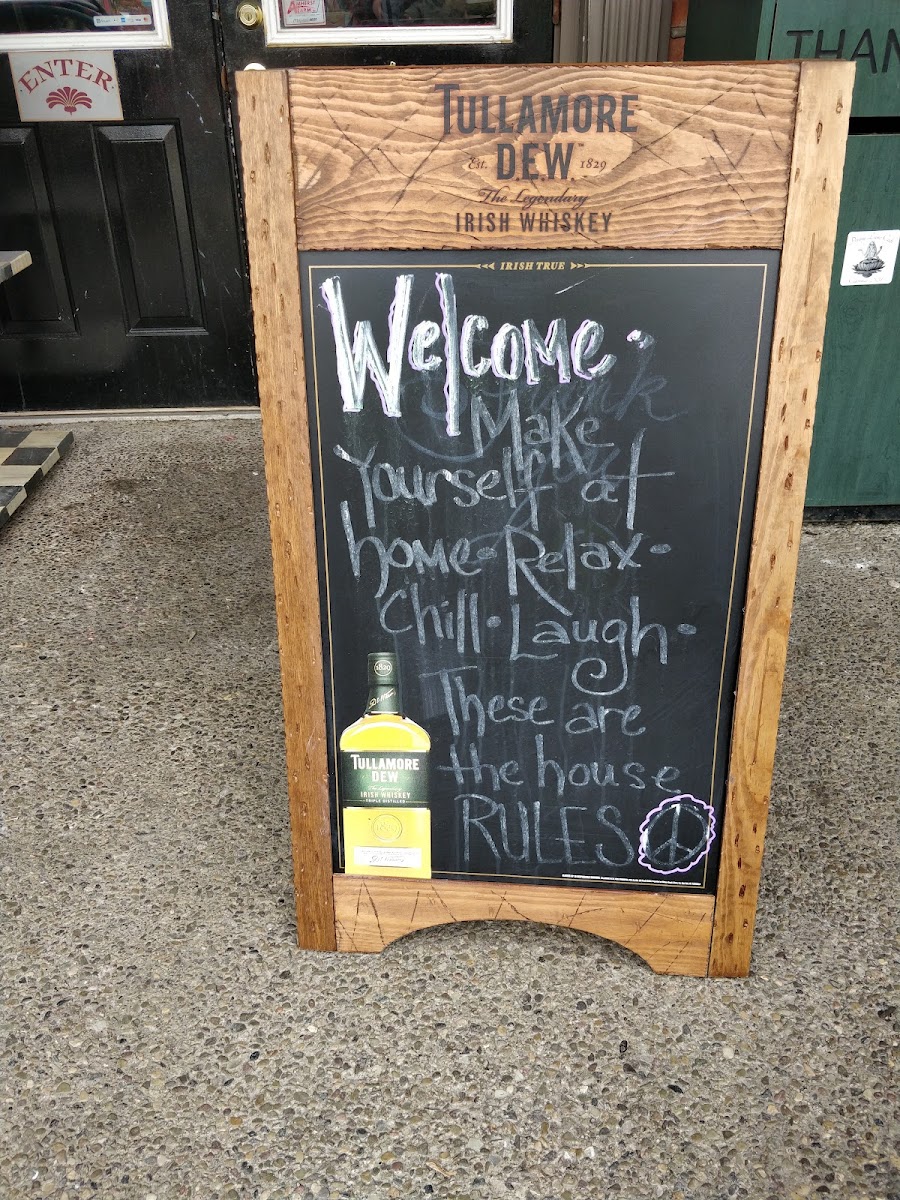 ENTER
THAN
TULLAMORE
Est. D.E.W. 1829
The Legendary
IRISH WHISKEY
IRISH TRUE
Welcome •
Make
Yourself at
home • Relax •
Chill • Laugh •
These are
the house
RULES
1829
TULLAMORE
DEW
The Legendary
IRISH WHISKEY
TRIPLE DISTILLED